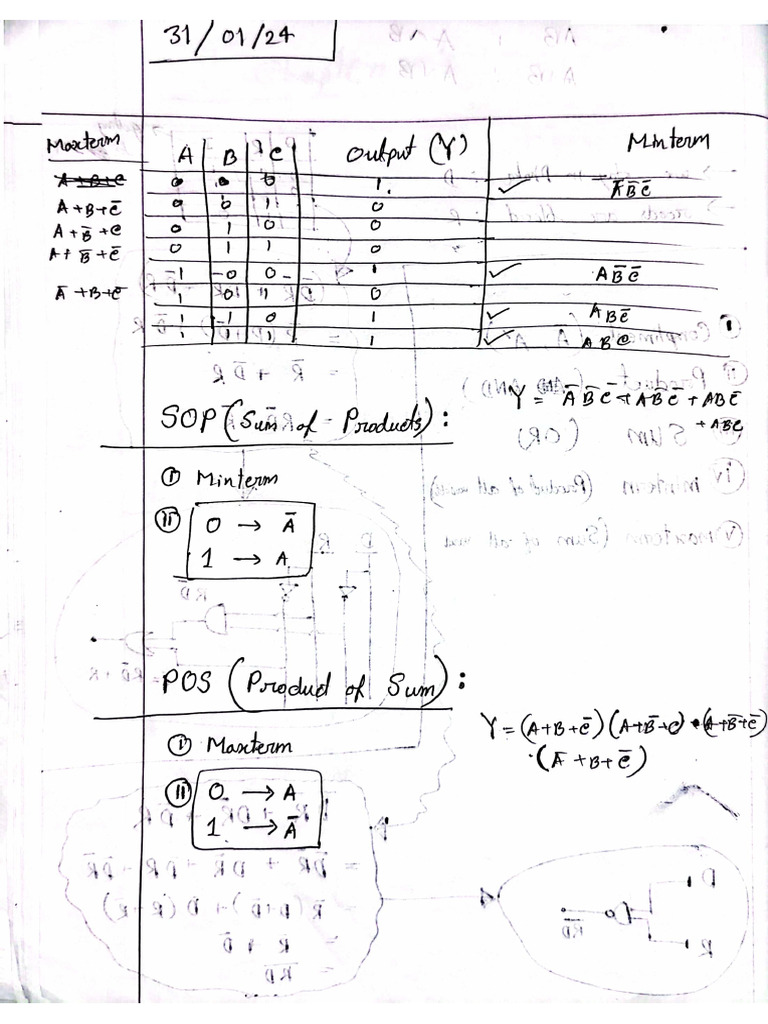 31/01/24
Maxterm A B C Output (Y) Minterm
A+B+C 0 0 0 1 ✓ A̅B̅C̅
A+B+C̅ 0 0 1 0
A+B̅+C 0 1 0 0
A+B̅+C̅ 0 1 1 0
1 0 0 1 ✓ AB̅C̅
A̅+B+C̅ 1 0 1 0
1 1 0 1 ✓ ABC̅
1 1 1 1 ✓ ABC
Y = A̅B̅C̅ + AB̅C̅ + ABC̅
+ ABC
SOP (Sum of - Products) :
(i) Minterm
(ii) 0 → A̅
1 → A
POS (Product of Sum) :
Y = (A+B+C̅) (A+B̅+C) • (A+B̅+C̅)
• (A̅+B+C̅)
(i) Maxterm
(ii) 0 → A
1 → A̅